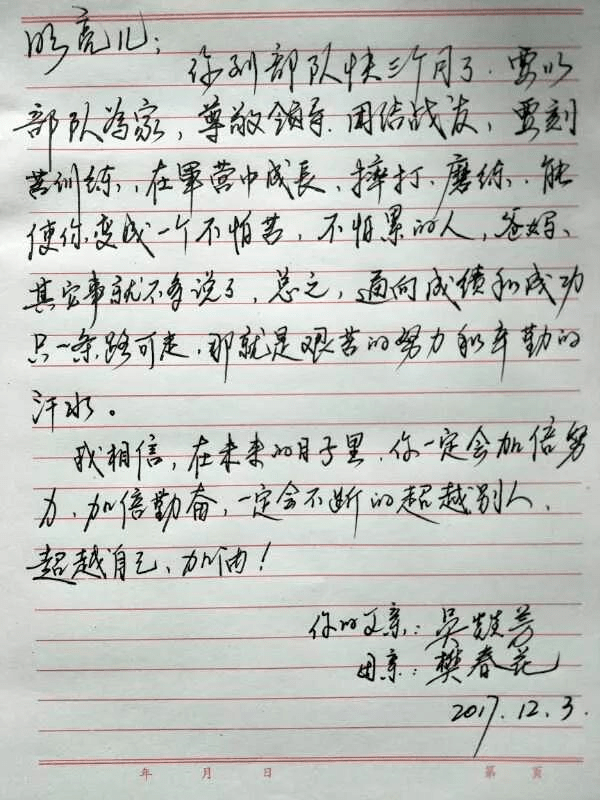 明亮儿：
你到部队快三个月了．要以
部队为家，尊敬领导．团结战友，要刻
苦训练，在军营中成長，摔打、磨练．能
使你变成一个不怕苦，不怕累的人，爸妈、
其它事就不多说了，总之，通向成绩和成功
只一条路可走，那就是艰苦的努力和辛勤的
汗水。
我相信，在未来的日子里．你一定会加倍努
力、加倍勤奋，一定会不断的超越别人、
超越自己、加油！
你的父亲：吴芳
母亲：樊春花
2017.12.3
年 月 日 第 页